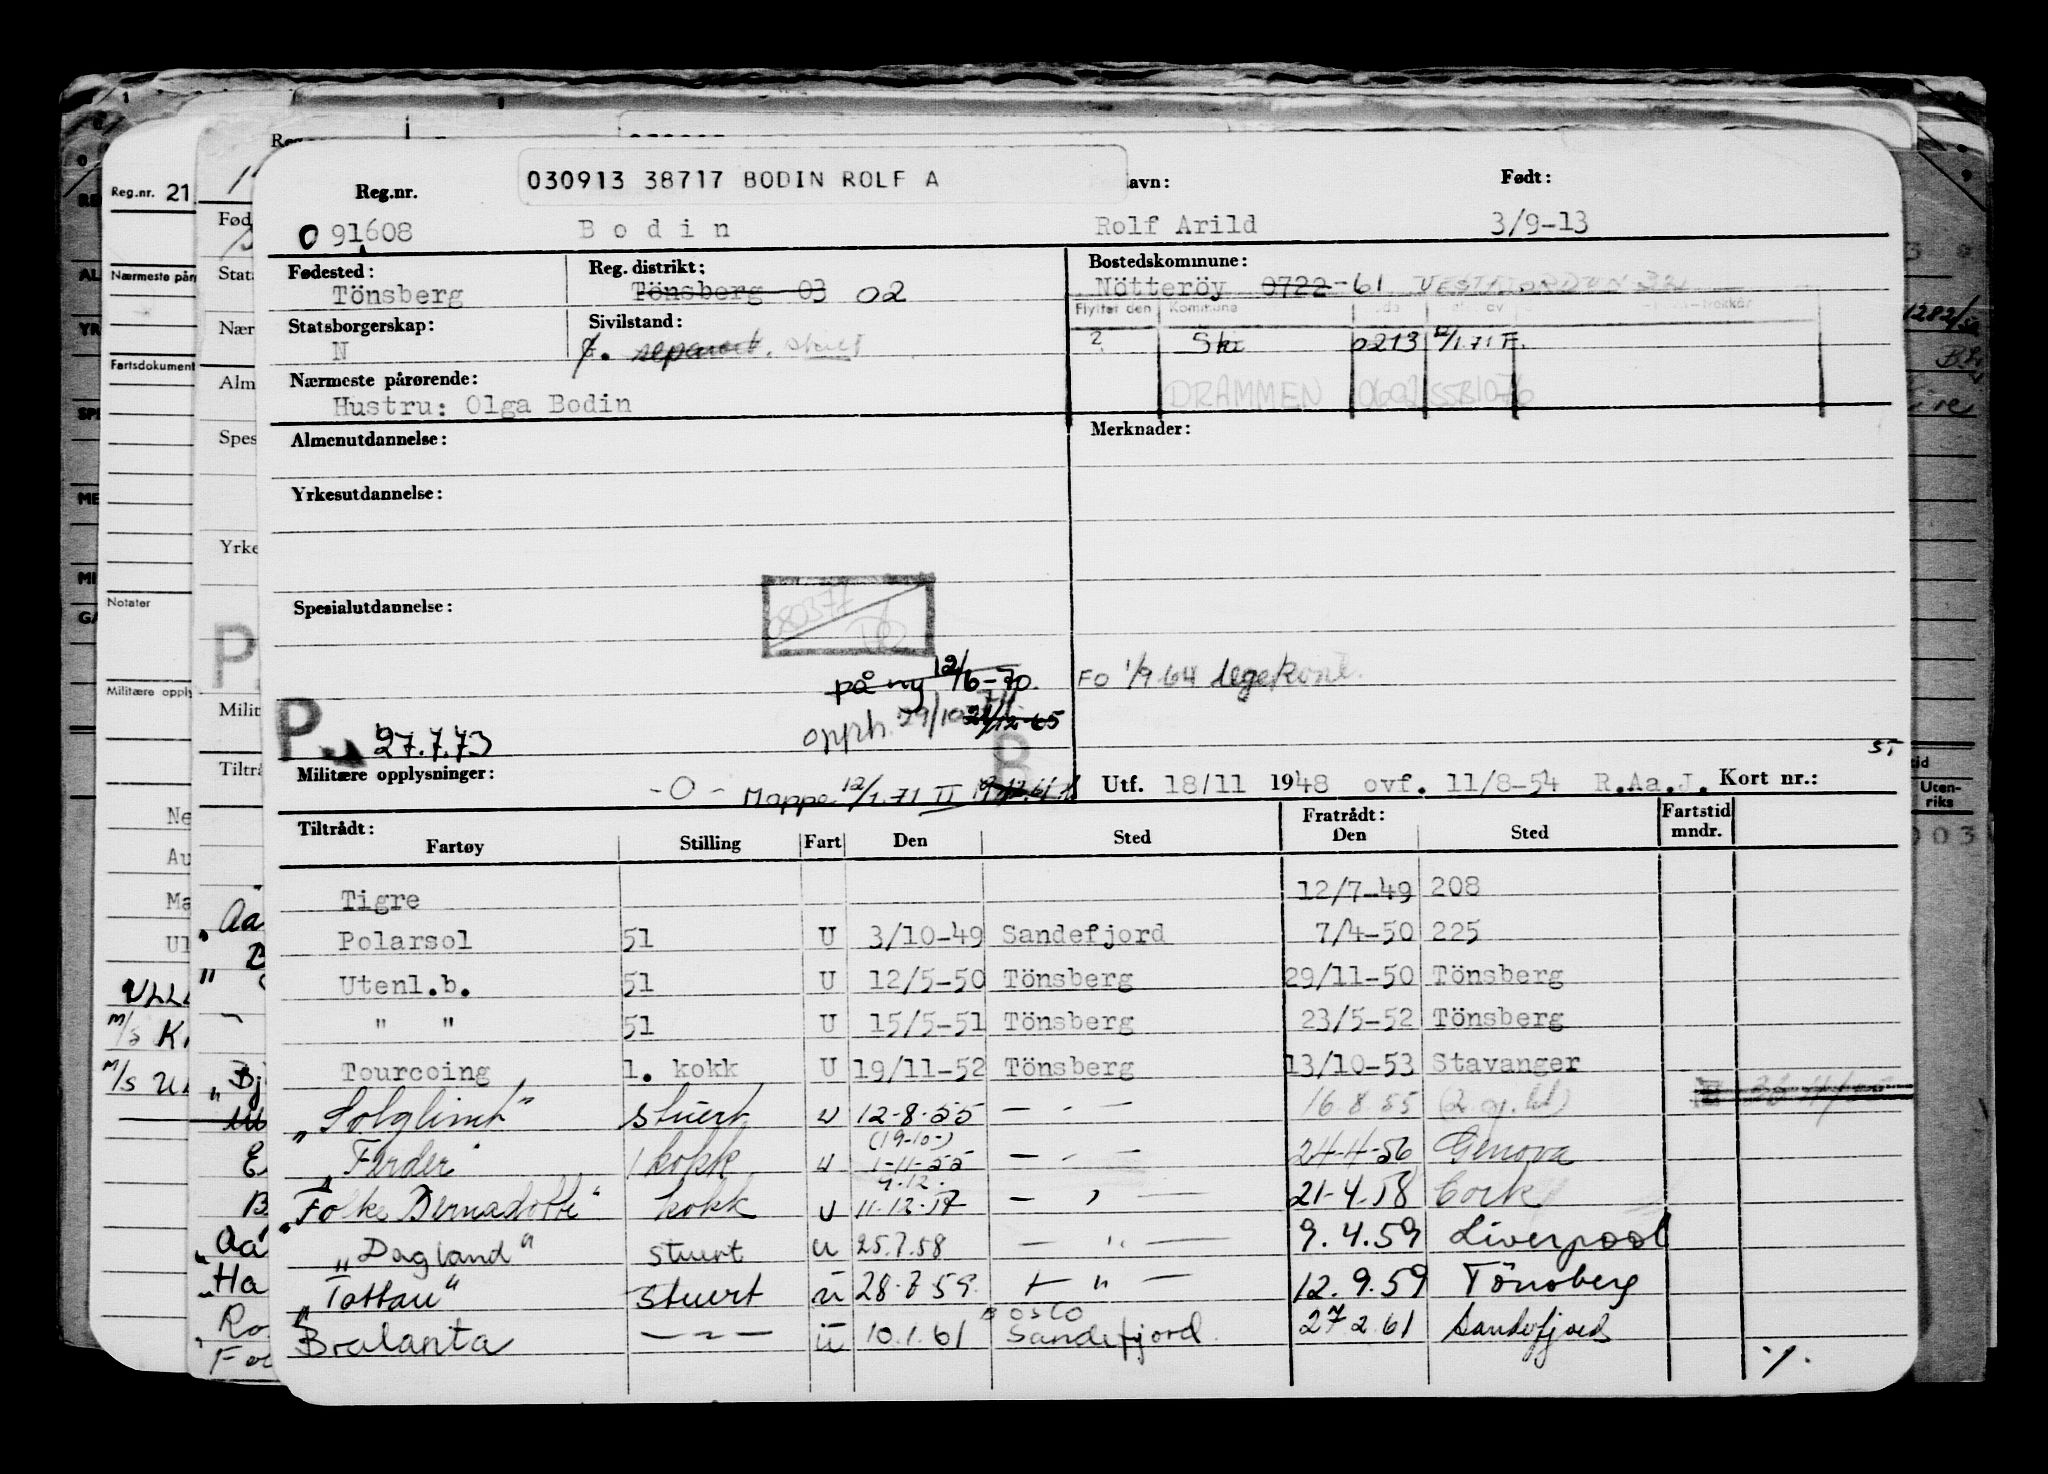 030913 38717 BODIN ROLF A
Reg.nr. avn: Født:
091608 Bodin Rolf Arild 3/9-13
Fødested: Reg. distrikt: Bostedskommune:
Tönsberg Tönsberg 03 02 Nötteröy 0722-61
Flyttet den Kommune
Statsborgerskap: Sivilstand:
N G. separert. skilt
2 Ski 0213 12/1.71 F.
Nærmeste pårørende:
Hustru: Olga Bodin
DRAMMEN 0602
Almenutdannelse: Merknader:
Yrkesutdannelse:
Spesialutdannelse:
80377
på ny 12/6-70.
FO 1/9 64 legekont.
P 27.7.73
opph. 29/10 21/12-65
B
Militære opplysninger: -0- Mappe 12/1.71 II
Utf. 18/11 1948 ovf. 11/8-54 R.Aa.J. Kort nr.:
Tiltrådt: Fratrådt: Fartstid
Fartøy Stilling Fart Den Sted Den Sted mndr.
Tigre 12/7-49 208
Polarsol 51 U 3/10-49 Sandefjord 7/4-50 225
Utenl.b. 51 U 12/5-50 Tönsberg 29/11-50 Tönsberg
" " 51 U 15/5-51 Tönsberg 23/5-52 Tönsberg
Tourcoing 1. kokk U 19/11-52 Tönsberg 13/10-53 Stavanger
"Solglimt" stuert u 12-8-55 — " — 16.8.55
(19-10-)
"Færder" 1 kokk u 1-11-55 — " — 24-4-56 Genova
9.12.
"Folke Bernadotte" kokk u 11.12.57 — " — 21-4.58 Cork
"Dagland" stuert u 25.7.58 — " — 9.4.59 Liverpool
"Tottan" stuert u 28.7.59. — " — 12.9.59 Tönsberg
Oslo
Bralanta — " — u 10.1.61 Sandefjord 27 2.61 Sandefjord
·/.
Reg.nr. 21
Nærmeste pår
Fartsdokument
Notater
Militære opply
Fød
Stats
Nær
Alm
Spes
Yrke
P
Milit
Tiltrå
Uten-
riks
003